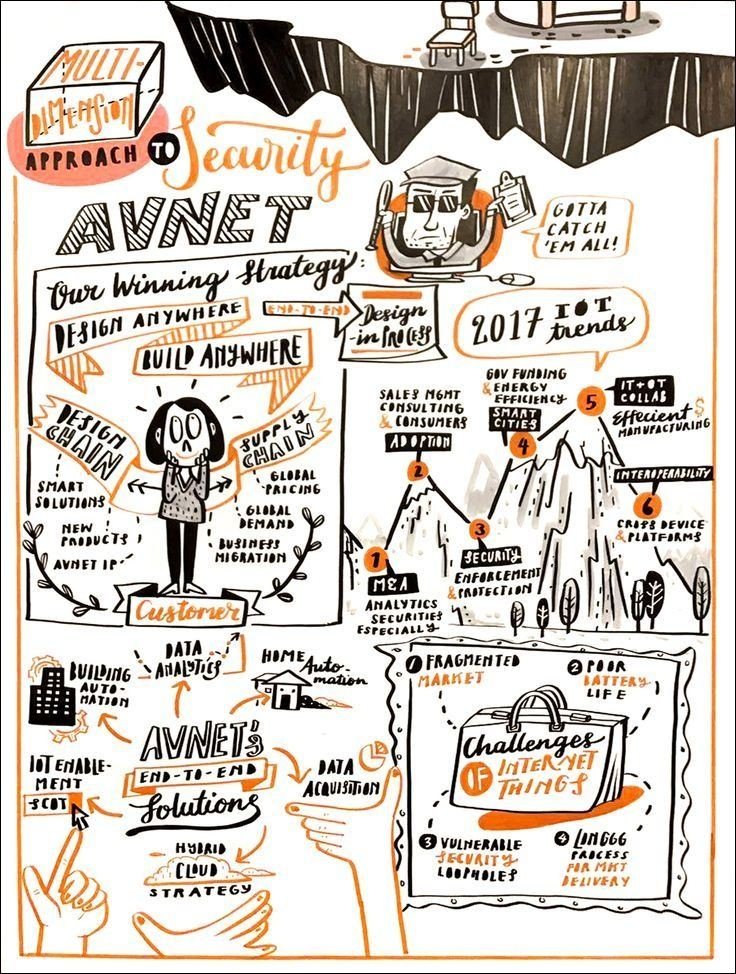 MULTI-
DIMENSION
APPROACH TO Security
AVNET
GOTTA
CATCH
'EM ALL!
Our Winning Strategy:
DESIGN ANYWHERE
BUILD ANYWHERE
END-TO-END
Design
-in PROCESS
DESIGN
CHAIN
SUPPLY
CHAIN
SMART
SOLUTIONS
NEW
PRODUCTS
AVNET IP
GLOBAL
PRICING
GLOBAL
DEMAND
BUSINESS
MIGRATION
Customer
2017 IOT
trends
1
M&A
ANALYTICS
SECURITIES
ESPECIALLY
SALES MGMT
CONSULTING
& CONSUMERS
ADOPTION
2
3
SECURITY
ENFORCEMENT
& PROTECTION
GOV FUNDING
& ENERGY
EFFICIENCY
SMART
CITIES
4
5
IT+OT
COLLAB
Effecient $
MANUFACTURING
INTEROPERABILITY
6
CROSS DEVICE
& PLATFORMS
AVNET'S
END-TO-END
Solutions
BUILDING
AUTO-
MATION
DATA
ANALYTICS
HOME Auto-
mation
DATA
ACQUISITION
HYBRID
CLOUD
STRATEGY
IOT ENABLE-
MENT
SCOT
Challenges
OF INTERNET
THINGS
1 FRAGMENTED
MARKET
2 POOR
BATTERY
LIFE
3 VULNERABLE
SECURITY
LOOPHOLES
4 LONGGG
PROCESS
FOR MKT
DELIVERY